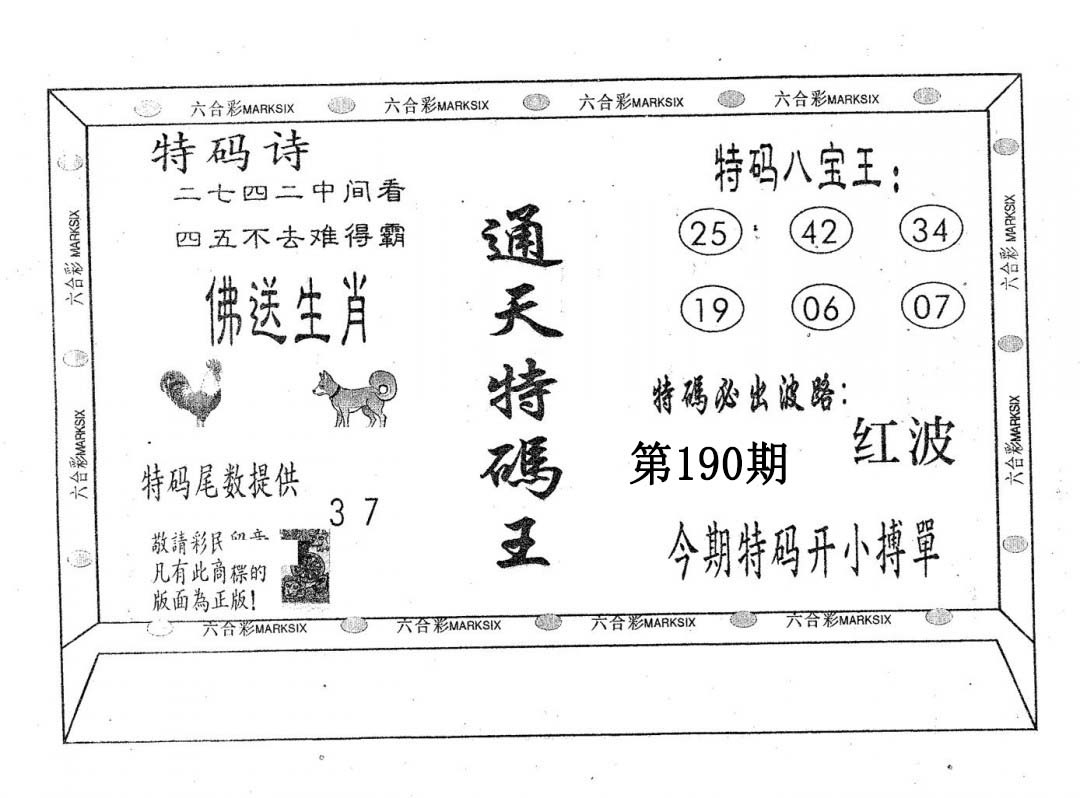 六合彩MARKSIX 六合彩MARKSIX 六合彩MARKSIX 六合彩MARKSIX
特码诗
二七四二中间看
四五不去难得霸
佛送生肖
特码尾数提供
3 7
敬請彩民
凡有此商標的
版面為正版!
通天特碼王
特码八宝王:
25 42 34
19 06 07
特碼必出波路:
红波
第190期
今期特码开小搏單
六合彩 MARKSIX
六合彩MARKSIX
六合彩 MARKSIX
六合彩MARKSIX
六合彩MARKSIX 六合彩MARKSIX 六合彩MARKSIX 六合彩MARKSIX